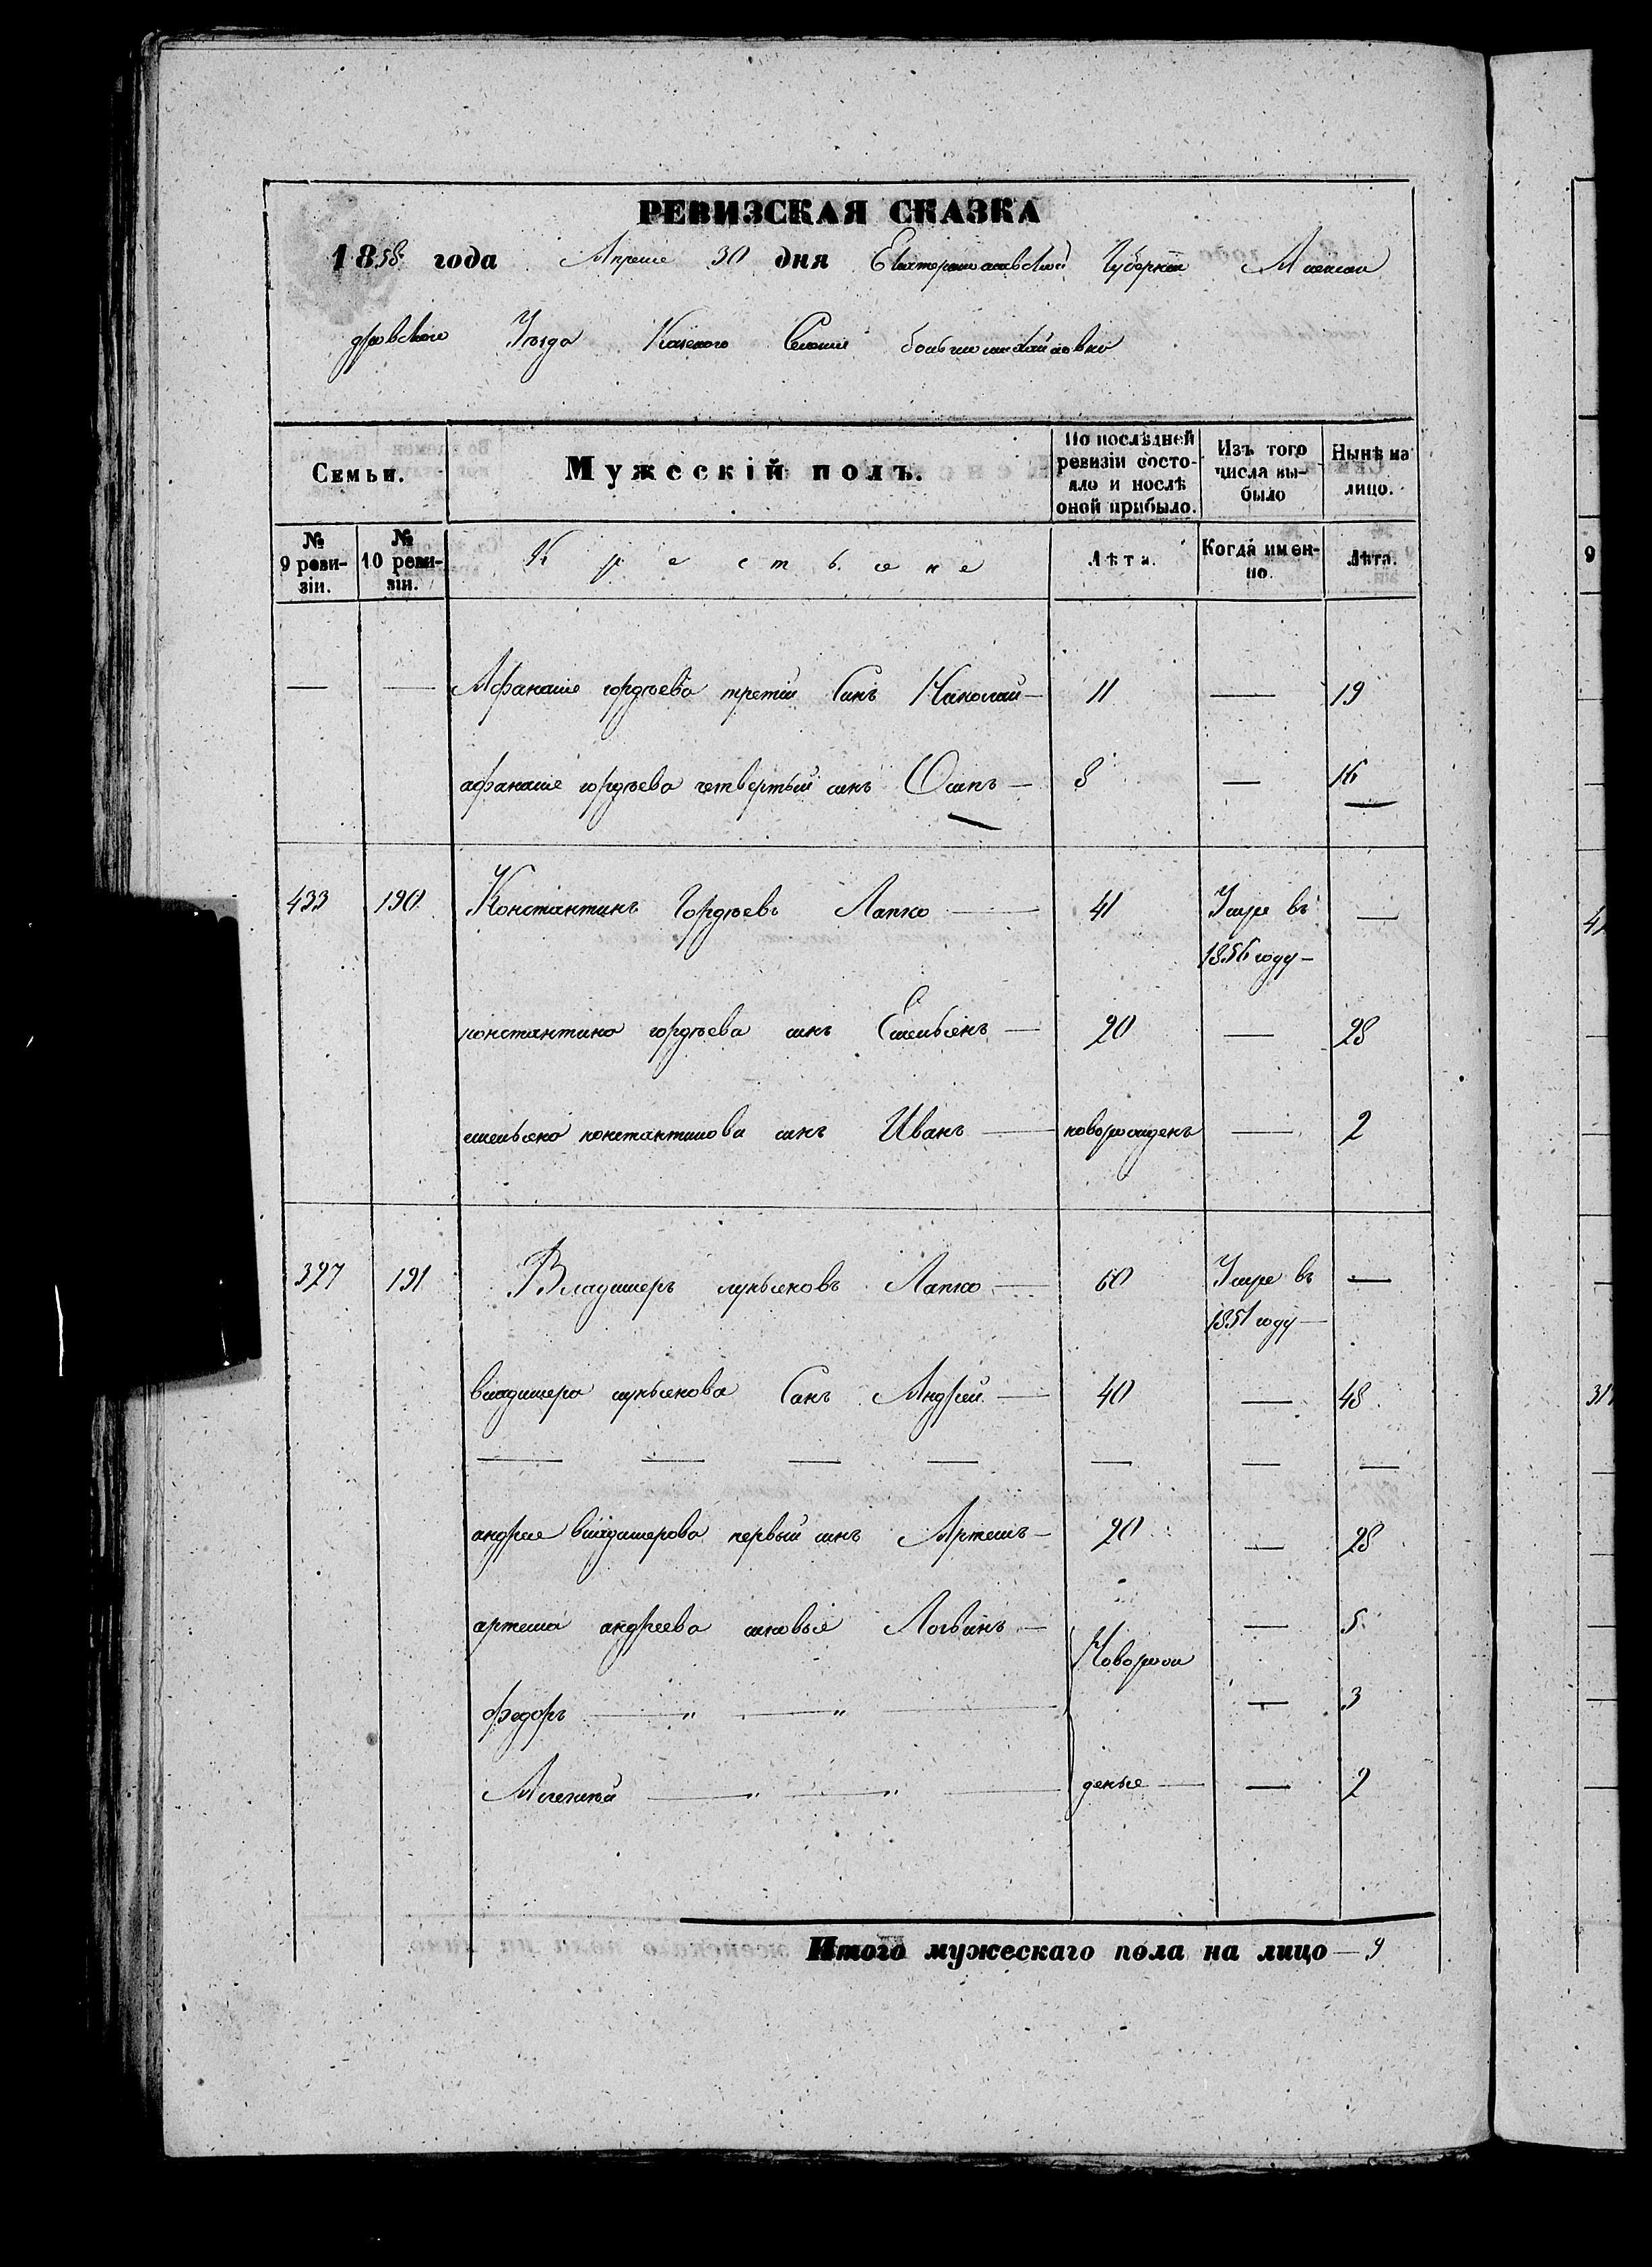 РЕВИЗСКАЯ СКАЗКА
1858 года Апреля 30 дня Екатеринославской Губернии Алексан
дровского Уезда Казеного Селения большемихайловки
Семьи.
Мужескій полъ.
По послѣдней ревизіи состояло и послѣ оной прибыло.
Изъ того числа выбыло
Нынѣ на лицо.
№ 9 ревизіи.
№ 10 ревизіи.
Крестьяне
Лѣта.
Когда именно.
Лѣта.
— — Афанасие гордѣева третій Синъ Николай — 11 — 19
афанасие гордѣева четвертый синъ Осипъ — 8 — 16
433 190 Константинъ Гордѣевъ Лапко — 41 Умре въ —
1856 году —
константина гордѣева синъ Емельянъ — 20 — 28
емельяна константинова синъ Иванъ — новорожденъ — 2
327 191 Владимеръ лукьяновъ Лапко — 60 Умре въ —
1851 году —
владимера лукьянова Синъ Андрей — 40 — 48
— — — — — — —
андрее владимерова первый синъ Артемъ — 20 — 28
артема андреева синовье Логвинъ — Новорож — 5
федоръ — " — " — — 3
— " — " — деные — — 2
Итого мужескаго пола на лицо — 9
9